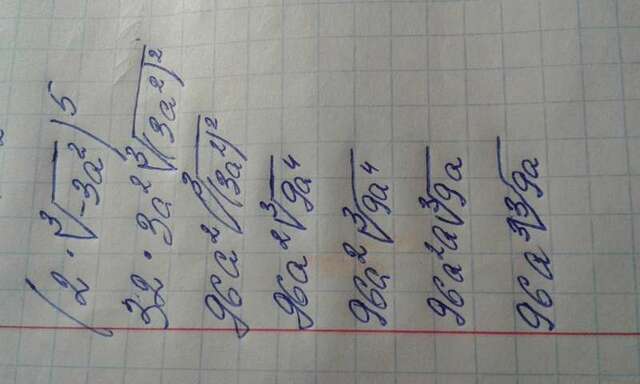 (2 · ∛(-3a²))⁵
32 · 3a² ∛((3a²)²)
96a² ∛((3a²)²)
96a² ∛(9a⁴)
96a² ∛(9a⁴)
96a²a ∛(9a)
96a³ ∛(9a)